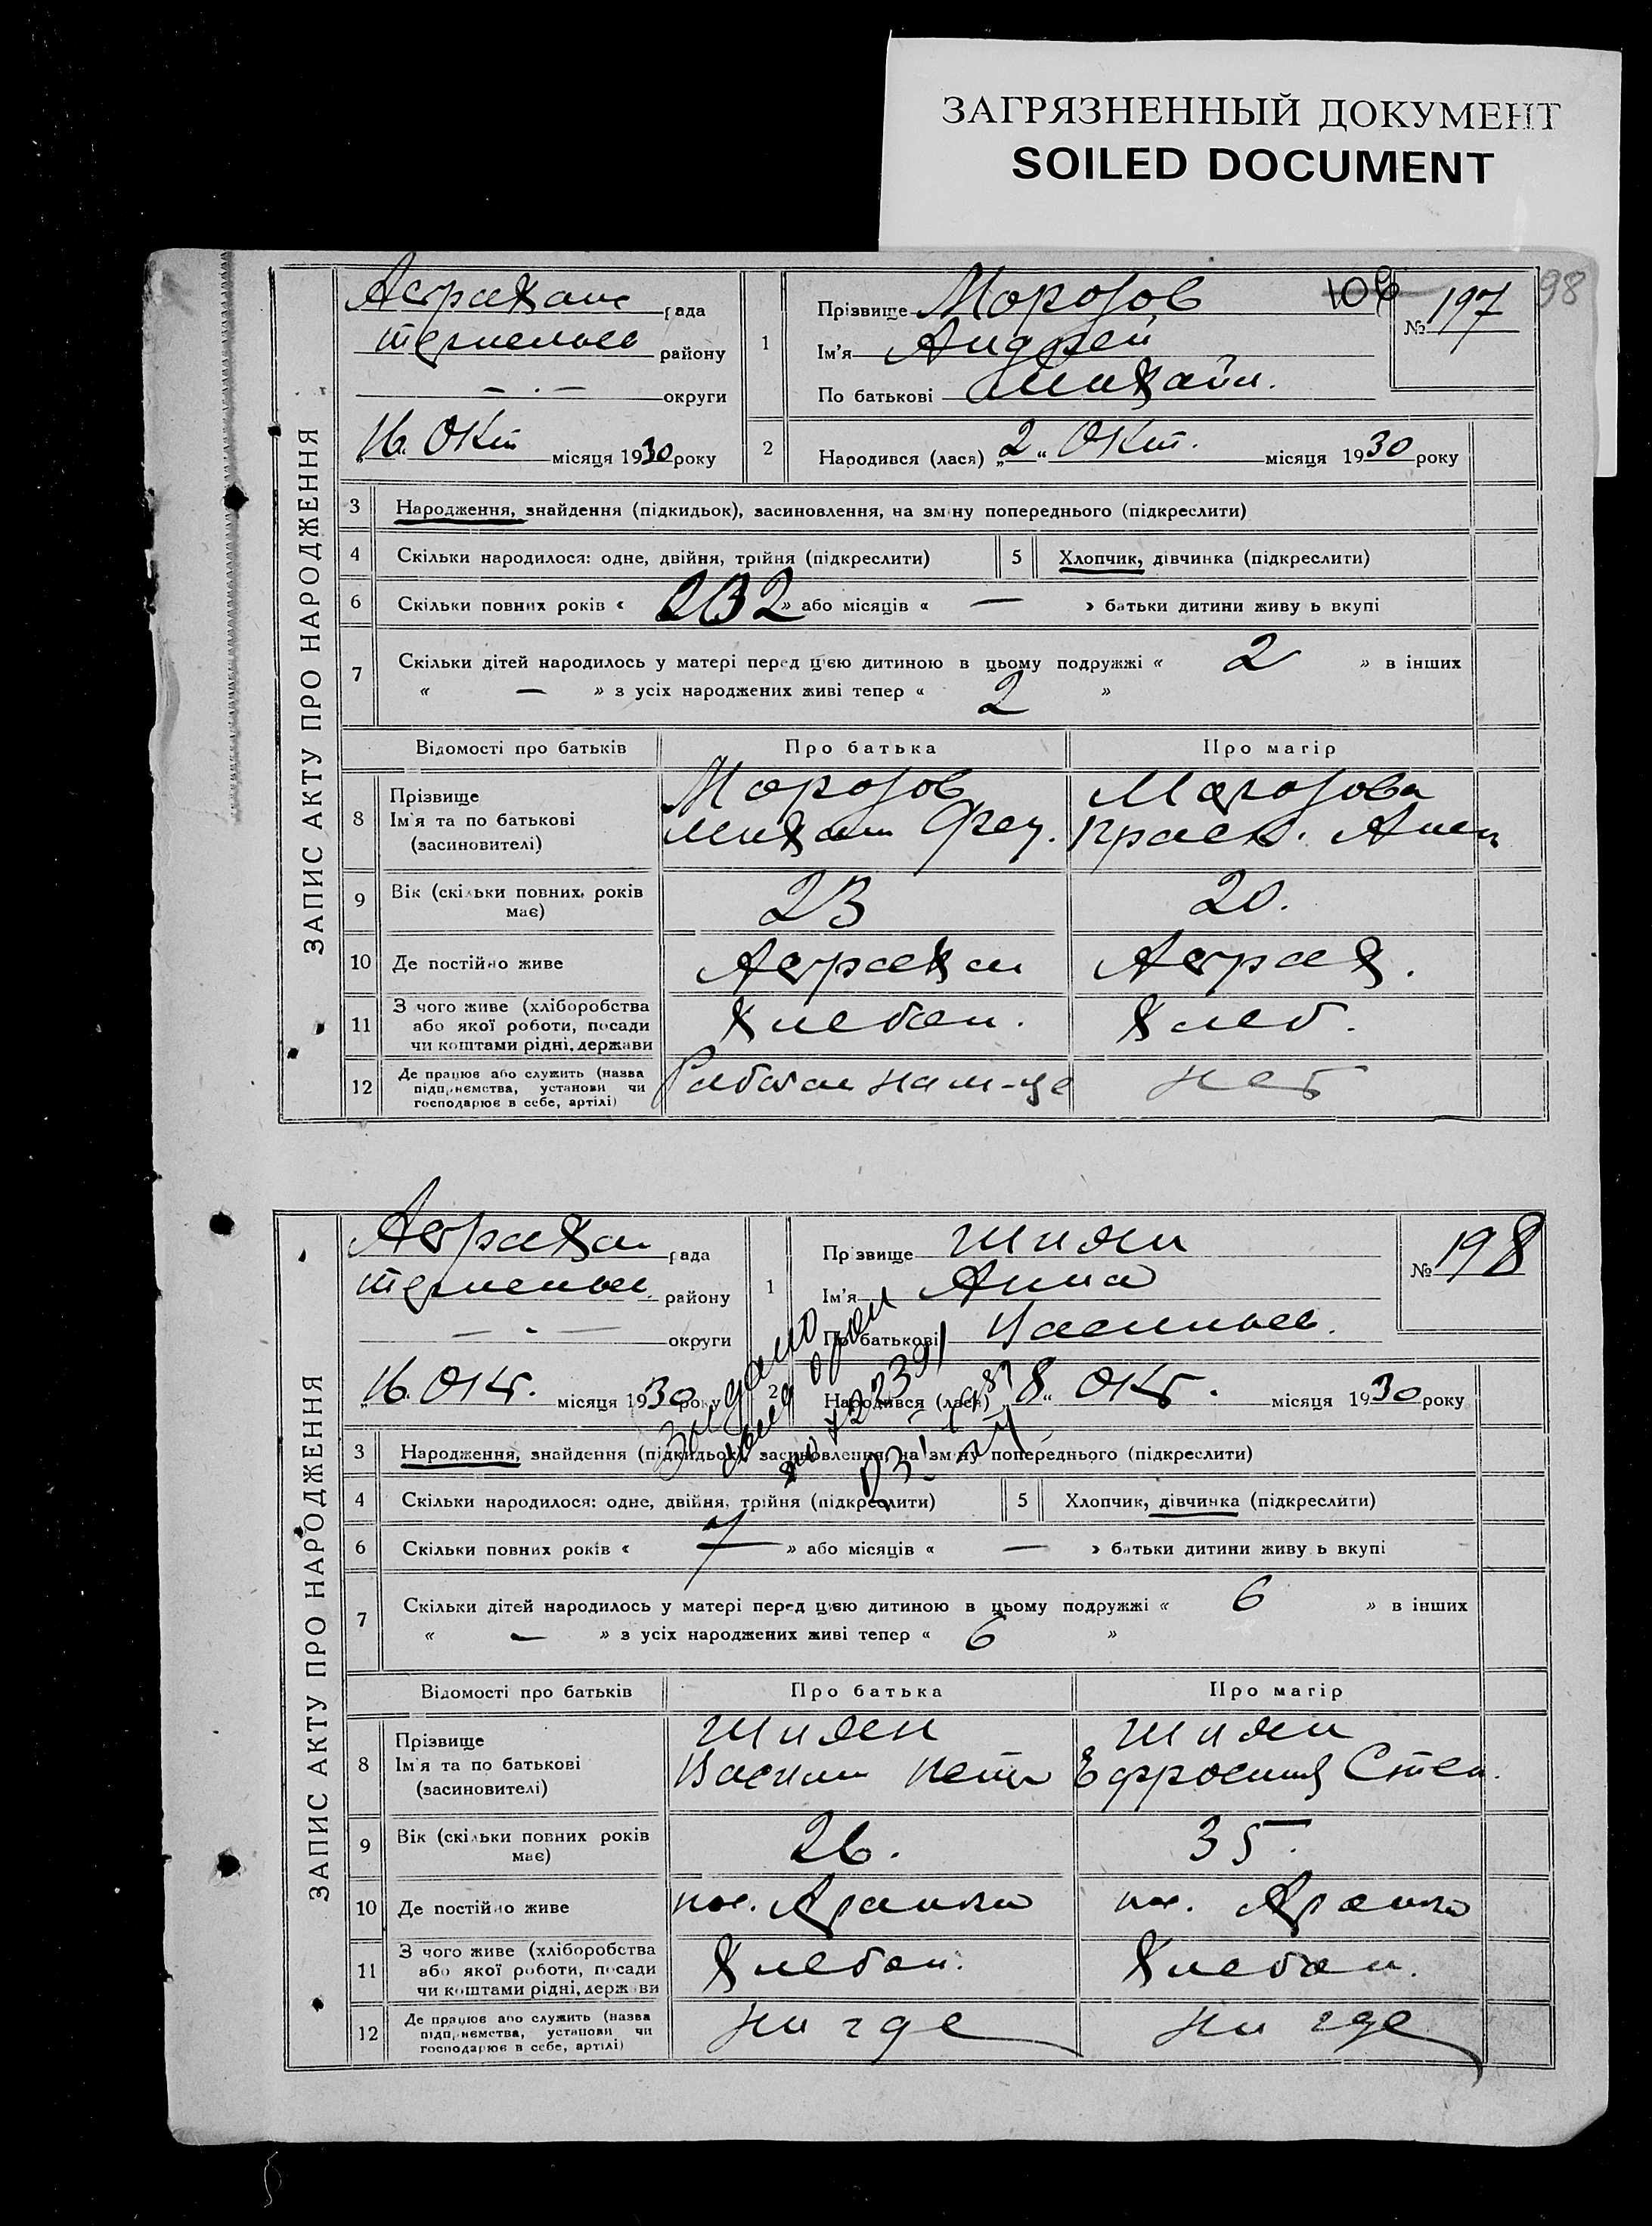 ЗАГРЯЗНЕННЫЙ ДОКУМЕНТ
SOILED DOCUMENT
98
ЗАПИС АКТУ ПРО НАРОДЖЕННЯ
Астрахан рада
району
— . — округи
16. Окт місяця 1930 року
1 Прізвище Морозов 106
№ 197
Ім'я Андрей
По батькові Михайл.
2 Народився (лася) „2“ Окт. місяця 1930 року
3 Народження, знайдення (підкидьок), засиновлення, на зміну попереднього (підкреслити)
4 Скільки народилося: одне, двійня, трійня (підкреслити) 5 Хлопчик, дівчинка (підкреслити)
6 Скільки повних років « » або місяців « — » батьки дитини живуть вкупі
7 Скільки дітей народилось у матері перед цією дитиною в цьому подружжі « 2 » в інших
« — » з усіх народжених живі тепер « 2 »
Відомості про батьків Про батька Про матір
8 Прізвище Морозов Морозова
Ім'я та по батькові Михаил
(засиновителі)
9 Вік (скільки повних років має) 23 20.
10 Де постійно живе Астрахан Астрах.
11 З чого живе (хліборобства або якої роботи, посади чи коштами рідні, держави Хлебоп. Хлеб.
12 Де працює або служить (назва підприємства, установи чи господарює в себе, артілі) нет
ЗАПИС АКТУ ПРО НАРОДЖЕННЯ
Астрахан рада
району
— . — округи
16. Окт. місяця 1930 року
1 Прізвище Шиян
№ 198
Ім'я Анна
По батькові Васильев.
2 Народився (лася) „8“ Окт. місяця 1930 року
3 Народження, знайдення (підкидьок), засиновлення, на зміну попереднього (підкреслити)
4 Скільки народилося: одне, двійня, трійня (підкреслити) 5 Хлопчик, дівчинка (підкреслити)
6 Скільки повних років « 7 » або місяців « — » батьки дитини живуть вкупі
7 Скільки дітей народилось у матері перед цією дитиною в цьому подружжі « 6 » в інших
« — » з усіх народжених живі тепер « 6 »
Відомості про батьків Про батька Про матір
8 Прізвище Шиян Шиян
Ім'я та по батькові Василий Петр Ефросиния Степ.
(засиновителі)
9 Вік (скільки повних років має) 26. 35.
10 Де постійно живе пос. пос.
11 З чого живе (хліборобства або якої роботи, посади чи коштами рідні, держави Хлебоп. Хлебоп.
12 Де працює або служить (назва підприємства, установи чи господарює в себе, артілі) ни где ни где